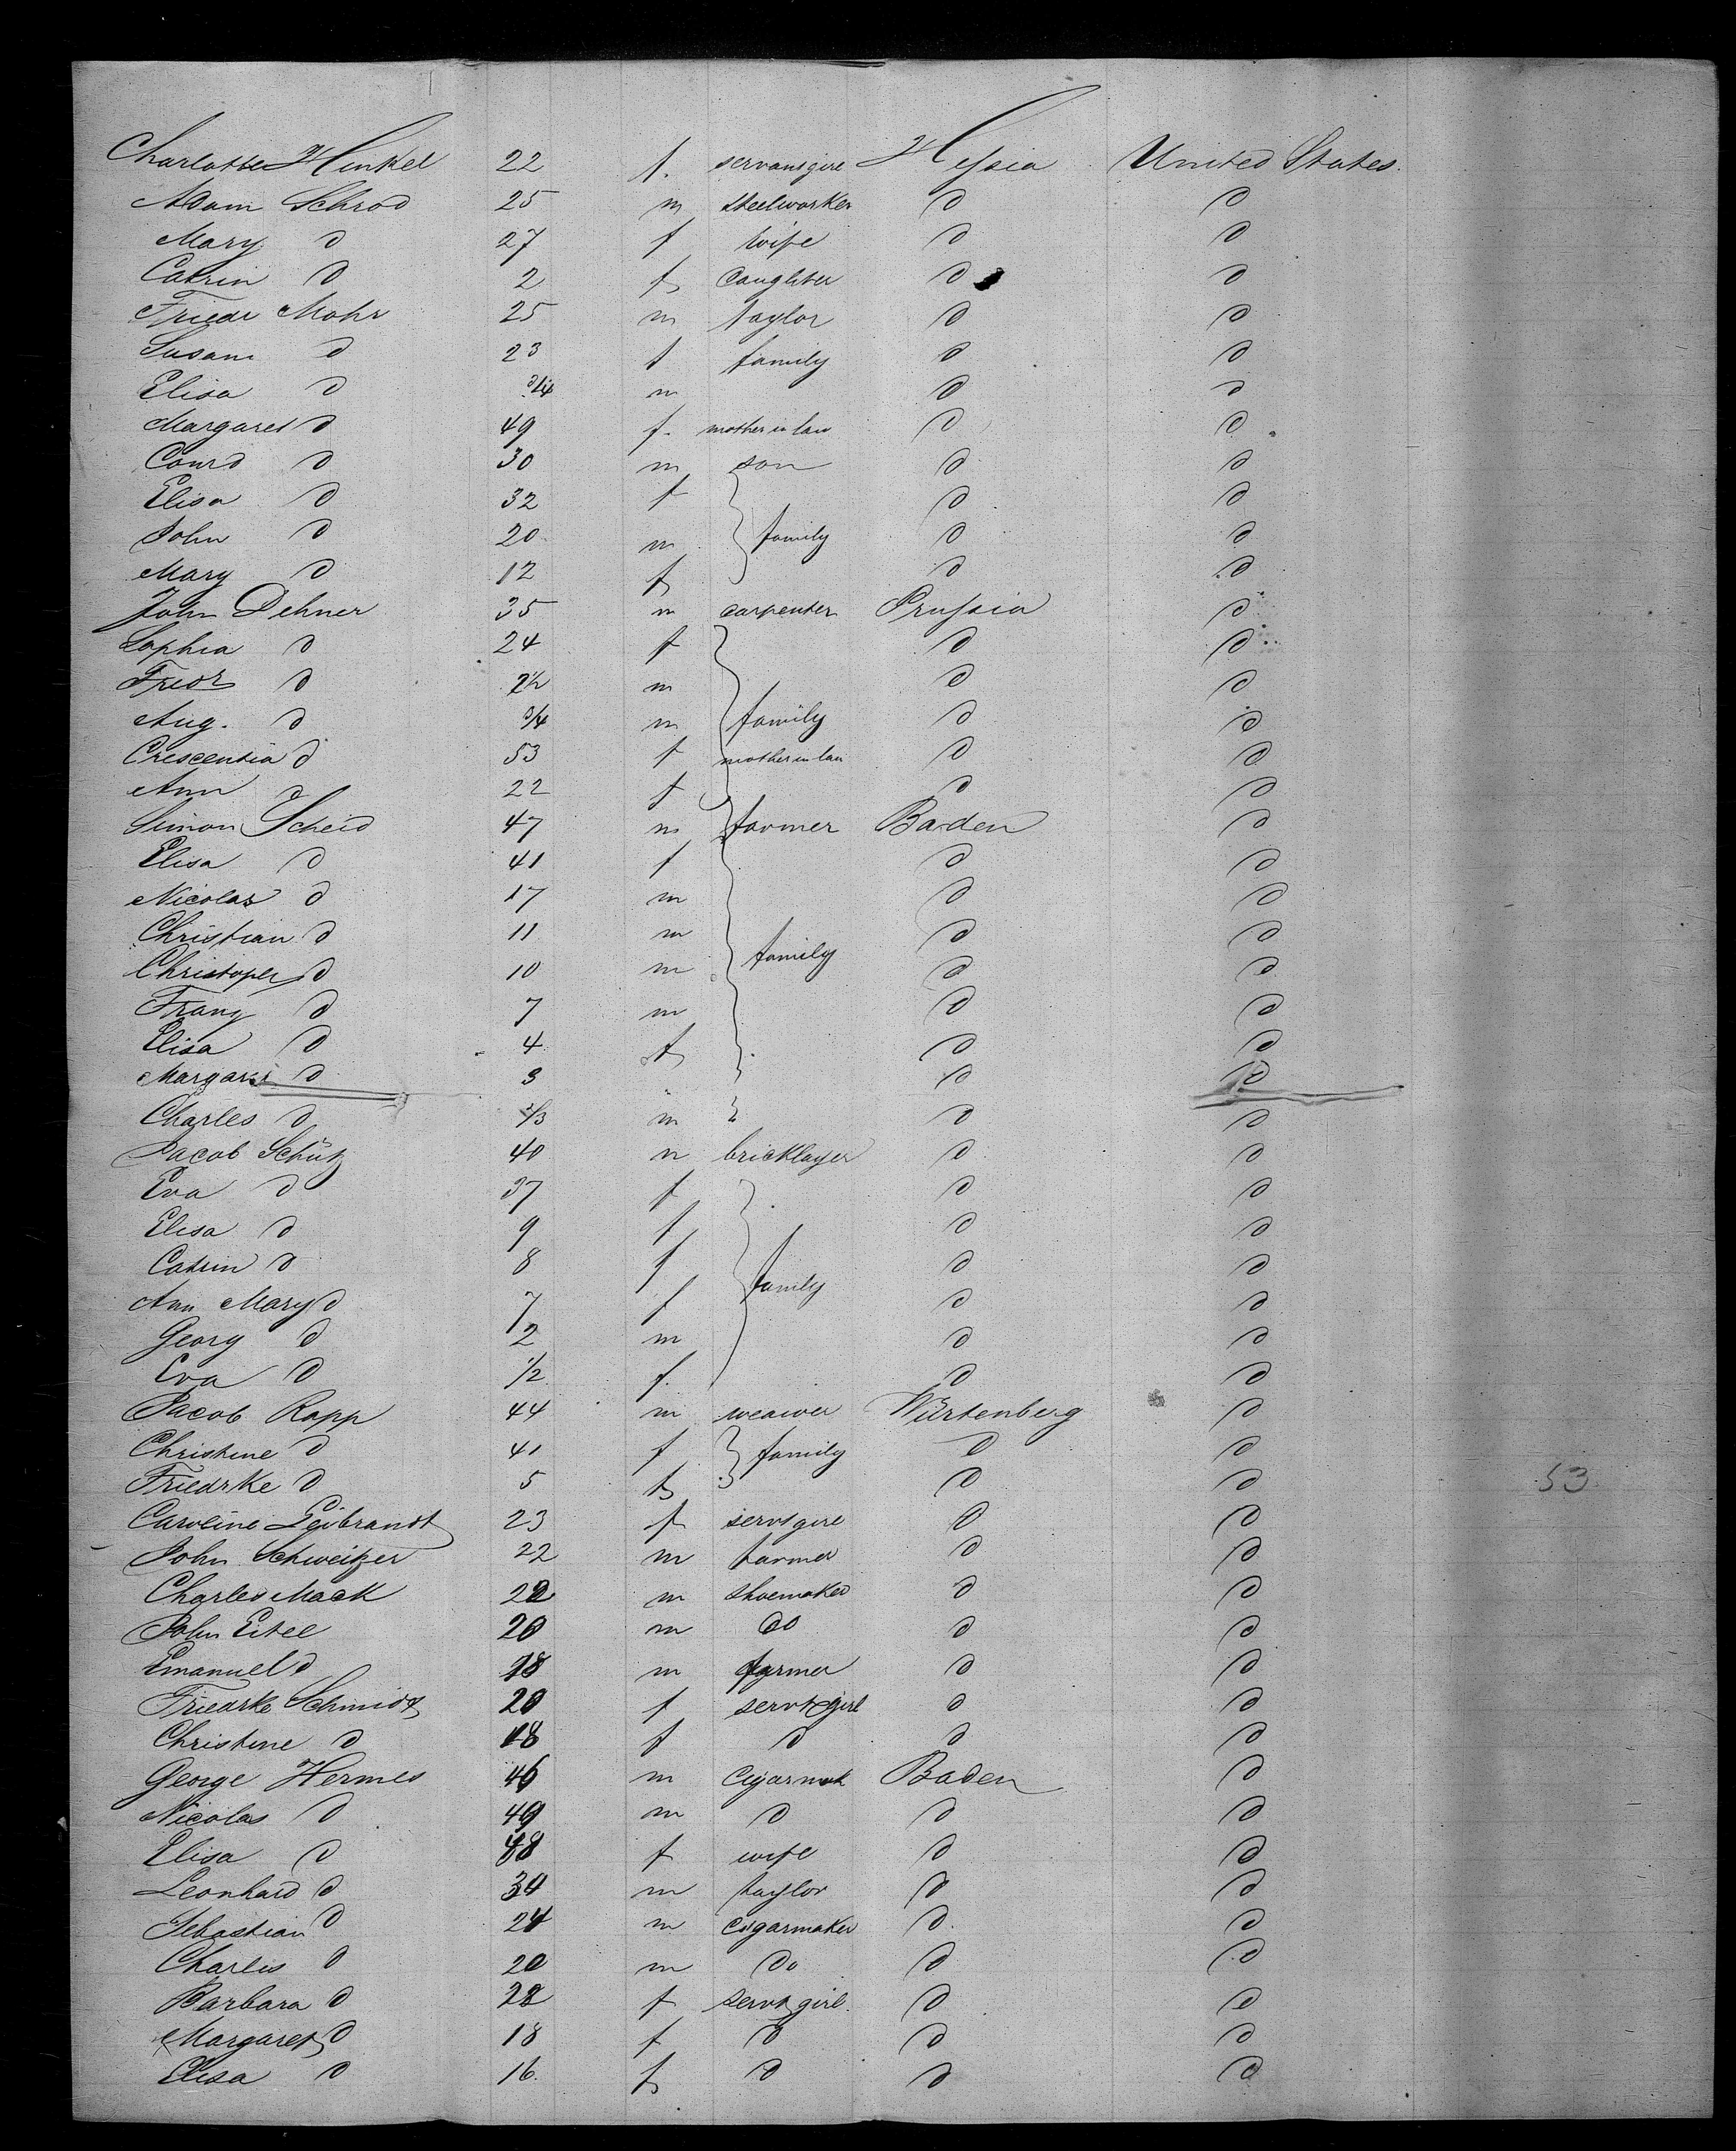 Charlotte Hinkel 22 f. servantgirl Hessia United States.
Adam Schrod 25 m steelworker d d
Mary d 27 f wife d d
Catrin d 2 f daughter d d
Friedr Mohr 25 m taylor d d
Susann d 23 f family d d
Elisa d 3/4 m d d
Margaret d 49 f. mother in law d d
Conrd d 30 m son d d
Elisa d 32 f d d
John d 20 m family d d
Mary d 12 f d d
John Dehner 35 m carpenter Prussia d
Sophia d 24 f d d
Friedr d 2 1/2 m d d
Aug. d 3/4 m family d d
Crescentia d 53 f mother in law d d
Ann d 22 f d d
Simon Scheid 47 m farmer Baden d
Elisa d 41 f d d
Nicolas d 17 m d d
Christian d 11 m d d
Christoper d 10 m family d d
Franz d 7 m d d
Elisa d 4 f d d
Margaret d 3 " d d
Charles d 2/3 m " d d
Jacob Schütz 40 m bricklayer d d
Eva d 37 f d d
Elisa d 9 f d d
Catrin d 8 f family d d
Ann Mary d 7 f d d
Georg d 2 m d d
Eva d 1/2 f. d d
Jacob Rapp 44 m weawer Würtenberg d
Christine d 41 f family d d
Friedrke d 5 f d d 53
Caroline Leibrandt 23 f servtgirl d d
John Schweitzer 22 m farmer d d
Charles Mack 22 m shoemaker d d
John Eitel 20 m do d d
Emanuel d 18 m farmer d d
Friedrke Schmidt 20 f servtgirl d d
Christine d 18 f d d d
George Hermes 46 m Cigarmak Baden d
Nicolas d 49 m d d d
Elisa d 48 f wife d d
Leonhard d 34 m taylor d d
Sebastian d 24 m Cigarmaker d d
Charles d 20 m Do d d
Barbara d 28 f servtgirl. d d
Margaret d 18 f d d d
Elisa d 16. f d d d